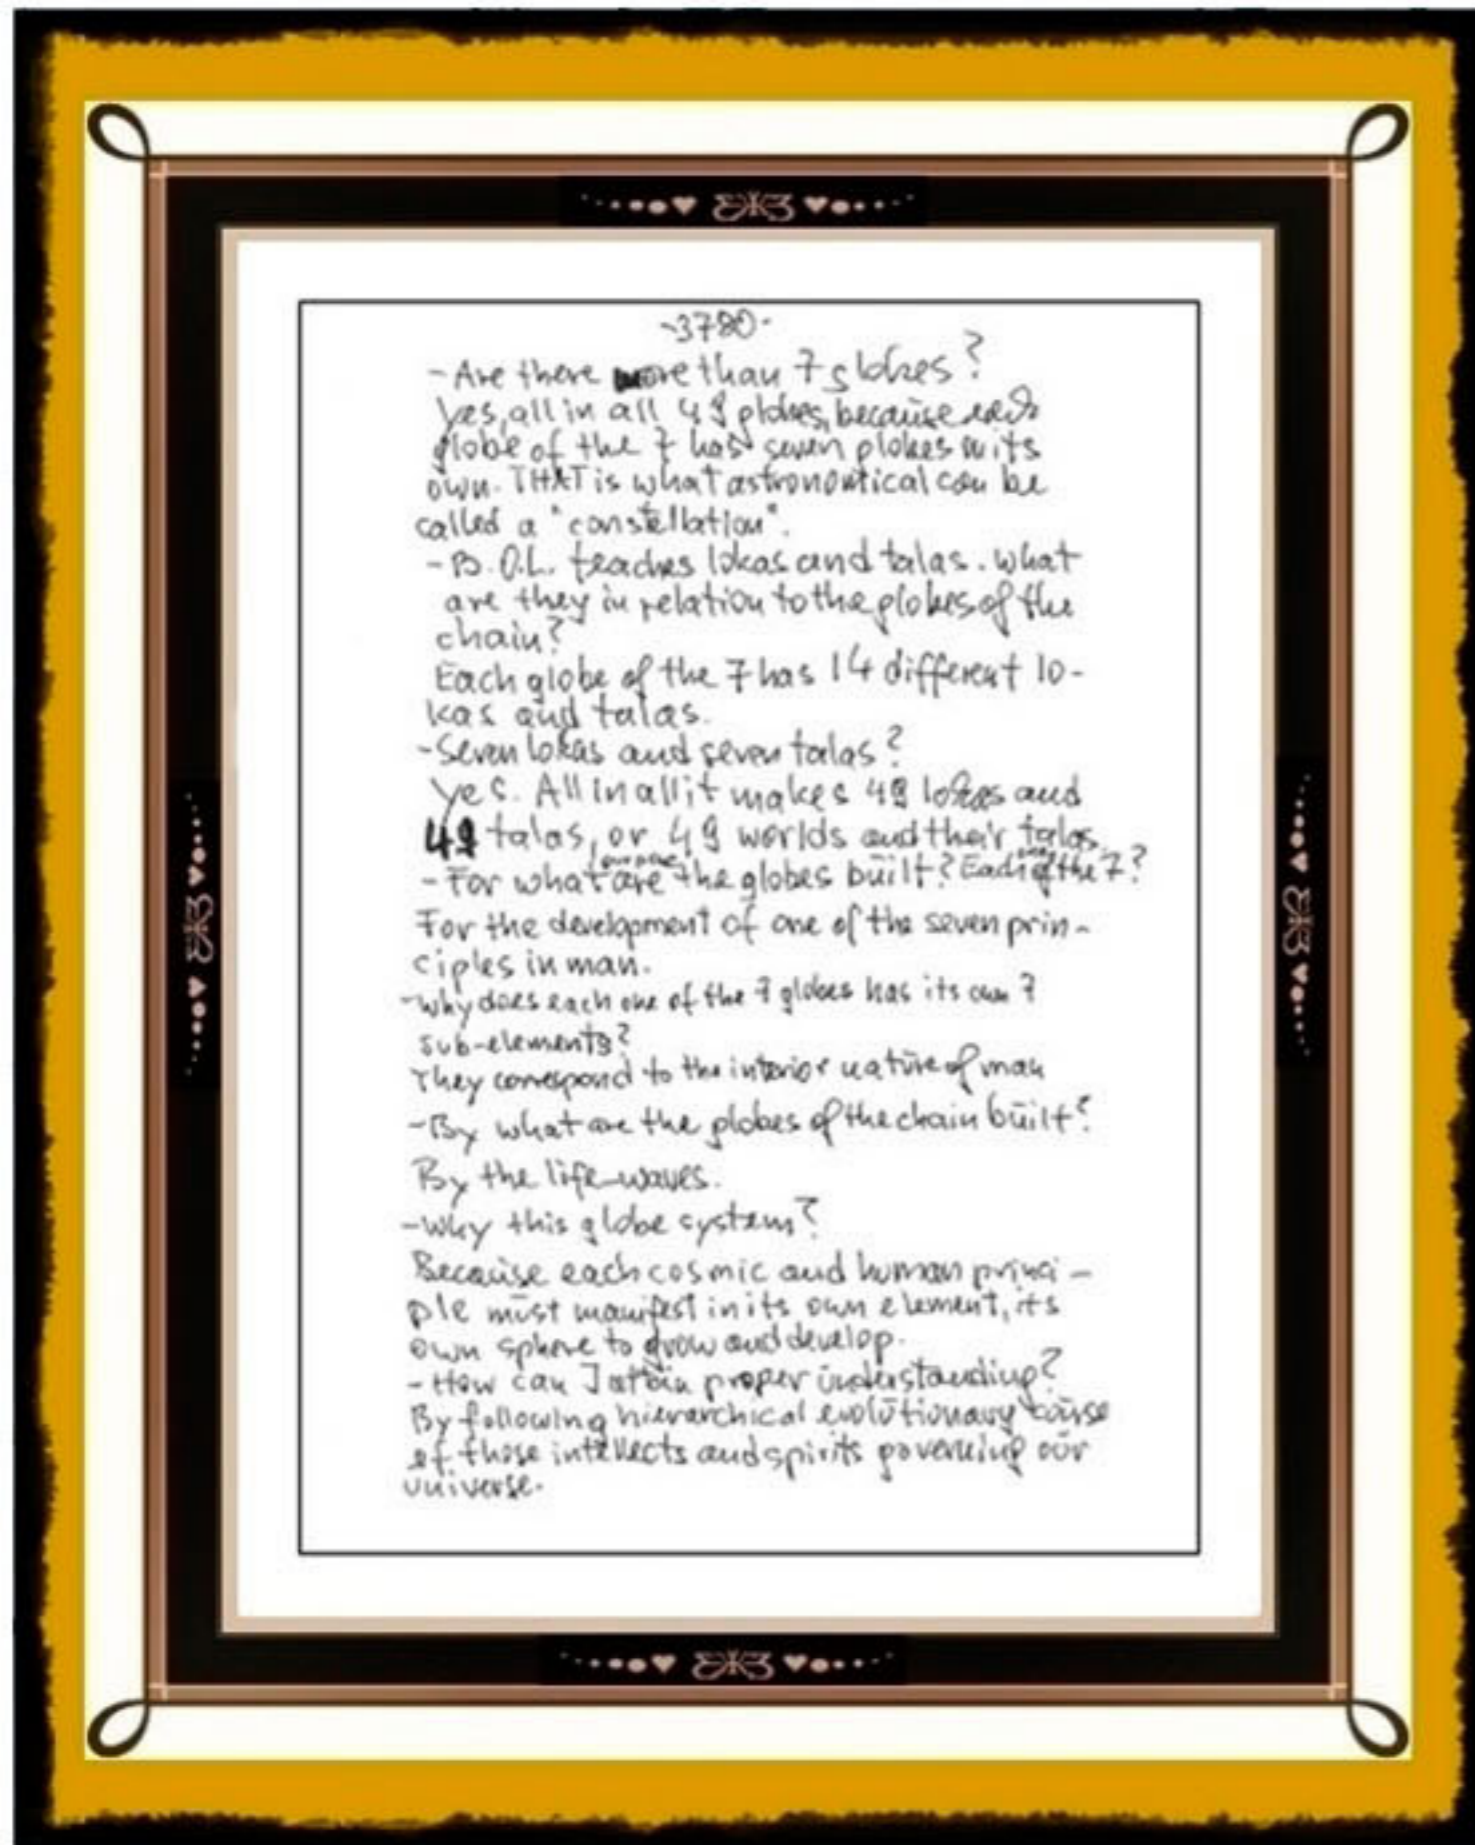 -3780-
- Are there more than 7 globes?
Yes, all in all 49 globes, because each
globe of the 7 has seven globes in its
own. THAT is what astronomical can be
called a "constellation".
- B.O.L. teaches lokas and talas. What
are they in relation to the globes of the
chain?
Each globe of the 7 has 14 different lo-
kas and talas.
- Seven lokas and seven talas?
Yes. All in all it makes 49 lokas and
49 talas, or 49 worlds and their talas.
- For what are the globes built? Each of the 7?
For the development of one of the seven prin-
ciples in man.
- Why does each one of the 7 globes has its own 7
sub-elements?
They correspond to the interior nature of man
- By what are the globes of the chain built?
By the life-waves.
- Why this globe system?
Because each cosmic and human princi-
ple must manifest in its own element, its
own sphere to grow and develop.
- How can I attain proper understanding?
By following hierarchical evolutionary course
of those intellects and spirits governing our
universe.